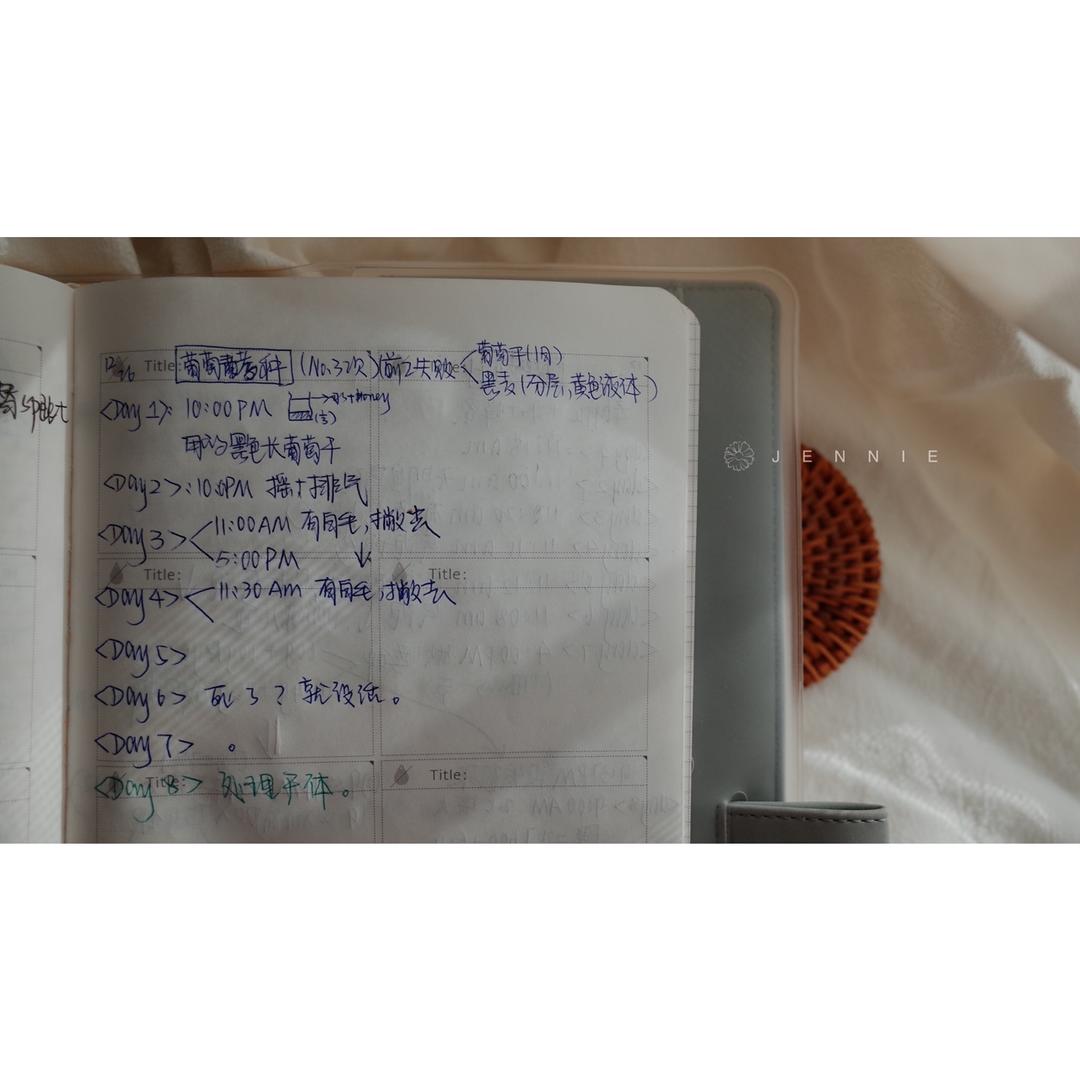 12/26 Title: 葡萄酵种 (No.3次) 前2失败 葡萄干(1月)
黑麦(分层,黄色液体)
<Day 1>: 10:00PM 水+honey
用的黑色长葡萄干
<Day2>: 10:0PM 摇+排气
<Day 3> 11:00AM 有白毛,撇去
5:00PM ↓
Title:
Title:
<Day 4> 11:30 Am 有白毛,撇去
<Day 5>
<Day 6> 死了?就没活。
<Day 7> 。
Title:
Title:
<Day 8> 处理干体。
JENNIE